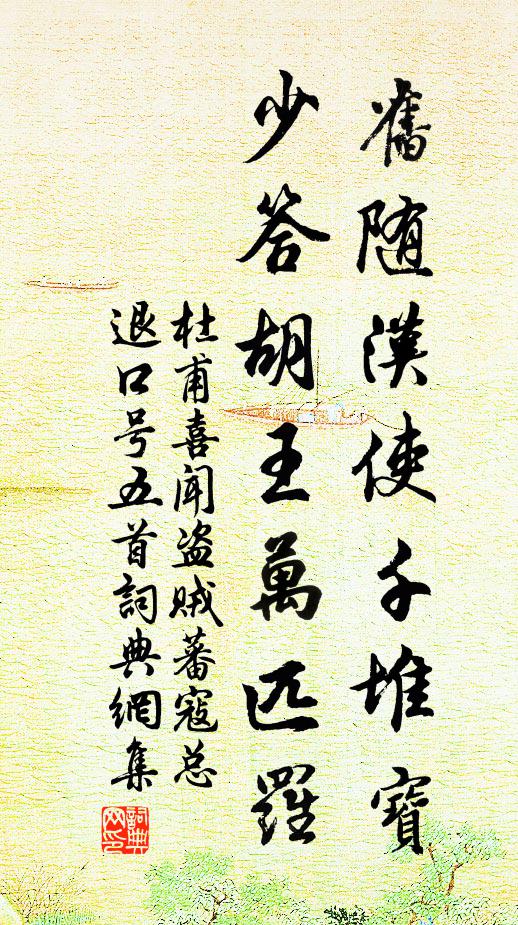 舊随漢使千堆寶
少答胡王萬匹羅
杜甫喜聞盗贼蕃寇总
退口号五首詞典網集
詞典
网印